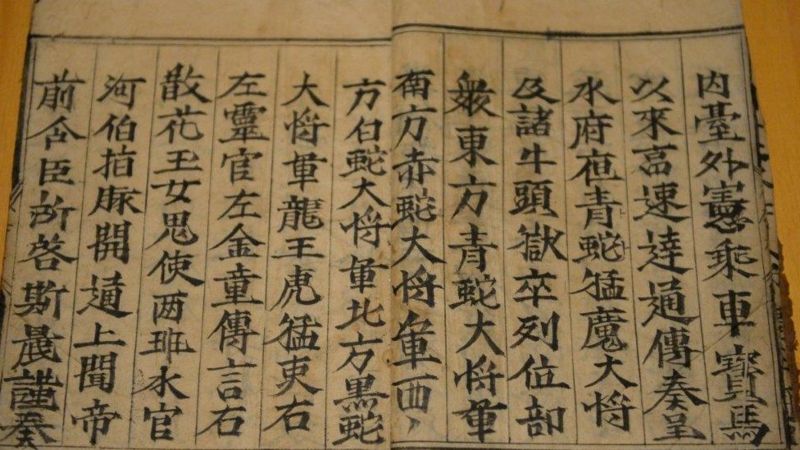 内臺外憲乘車寳馬
以來高速逹逋傳奏呈
水府夜青蛇猛魔大将
及諸牛頭獄卒列位部
衆東方青蛇大将軍
南方赤蛇大将軍西
方白蛇大将軍北方黒蛇
大将軍龍王虎猛吏右
左靈官左金童傳言右
散花玉女思使两班水官
河伯指𨂍開逋上聞帝
前令臣所啓斯晨謹奏